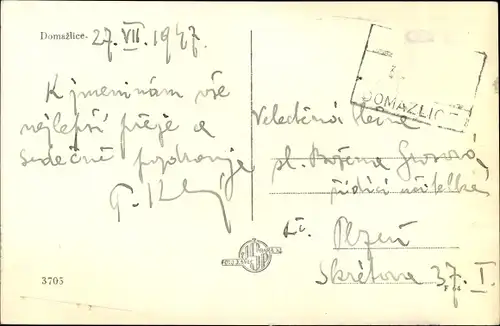 Domažlice. 27. VII. 1947.
K jmeninám vše
nejlepší přeje a
srdečně pozdravuje
DOMAŽLICE
Velectěná slečna
sl. Božena Grossová
řídící učitelka
Plzeň
Škrétova 37. I.
3705